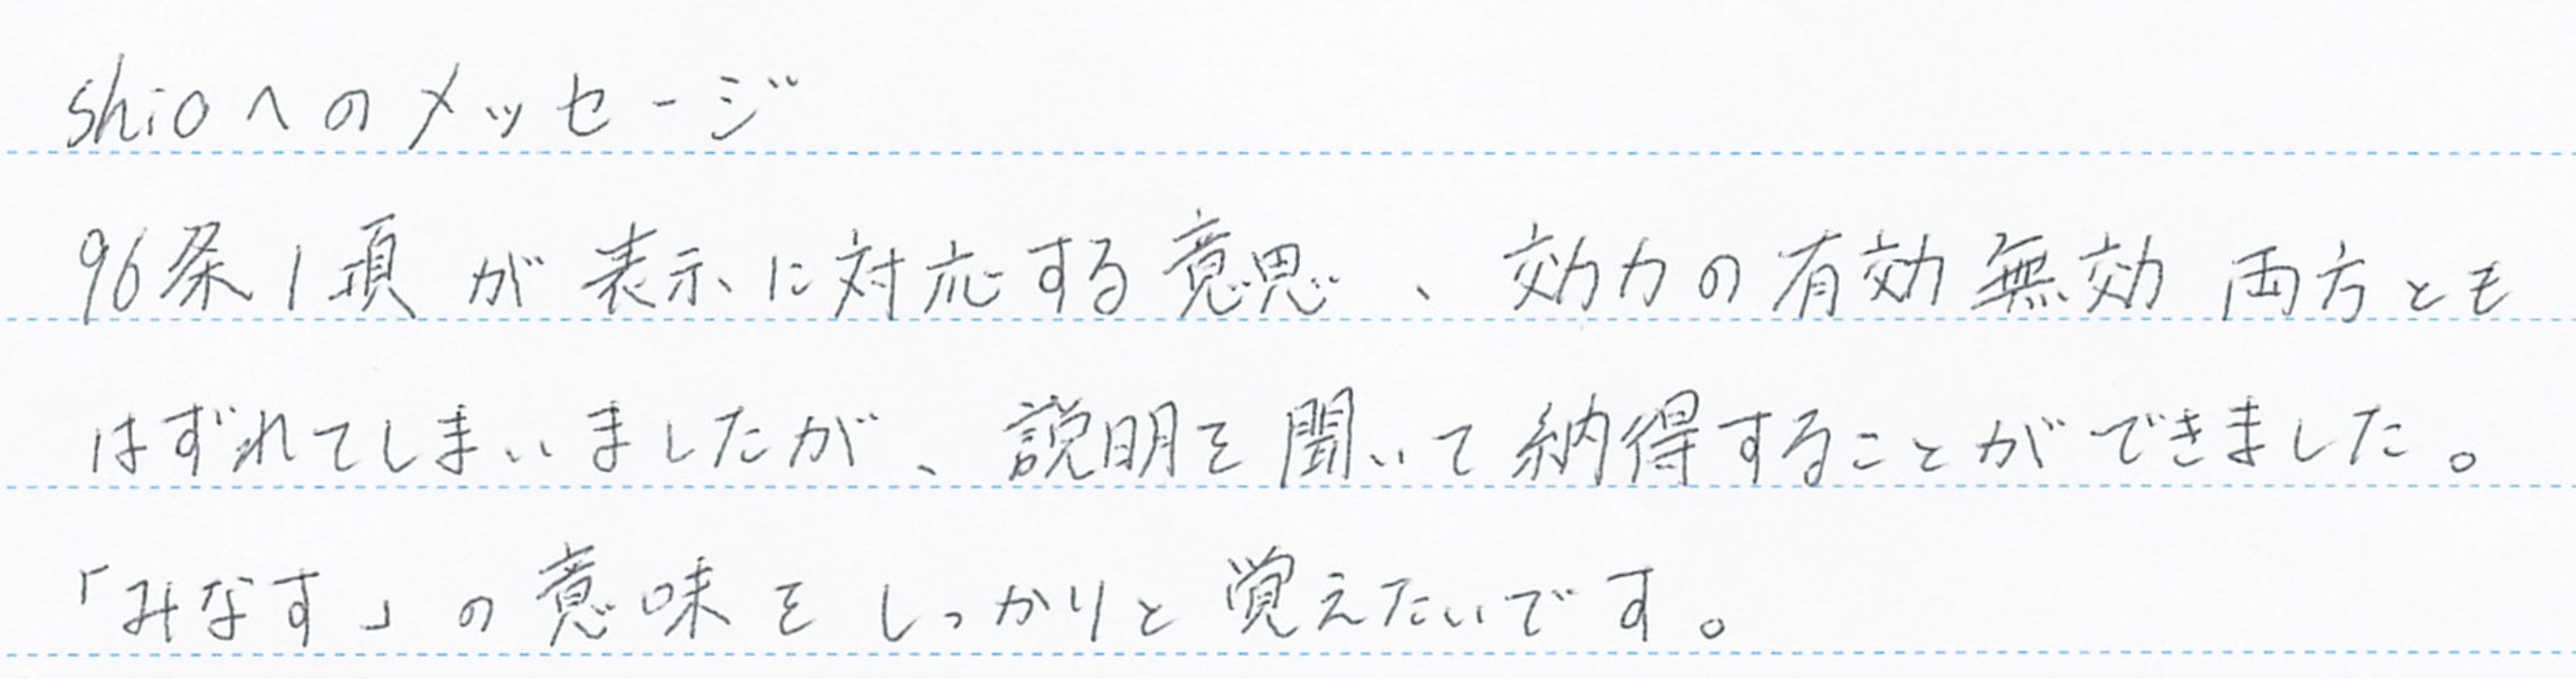 shioへのメッセージ
96条1項が表示に対応する意思、効力の有効無効両方とも
はずれてしまいましたが、説明を聞いて納得することができました。
「みなす」の意味をしっかりと覚えたいです。